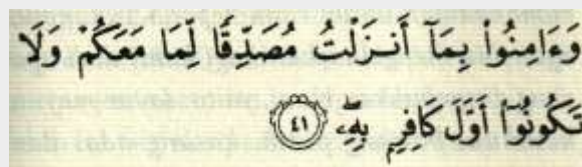 وَءَامِنُوا۟ بِمَآ أَنزَلْتُ مُصَدِّقًا لِّمَا مَعَكُمْ وَلَا
تَكُونُوٓا۟ أَوَّلَ كَافِرٍۭ بِهِۦۖ ٤١